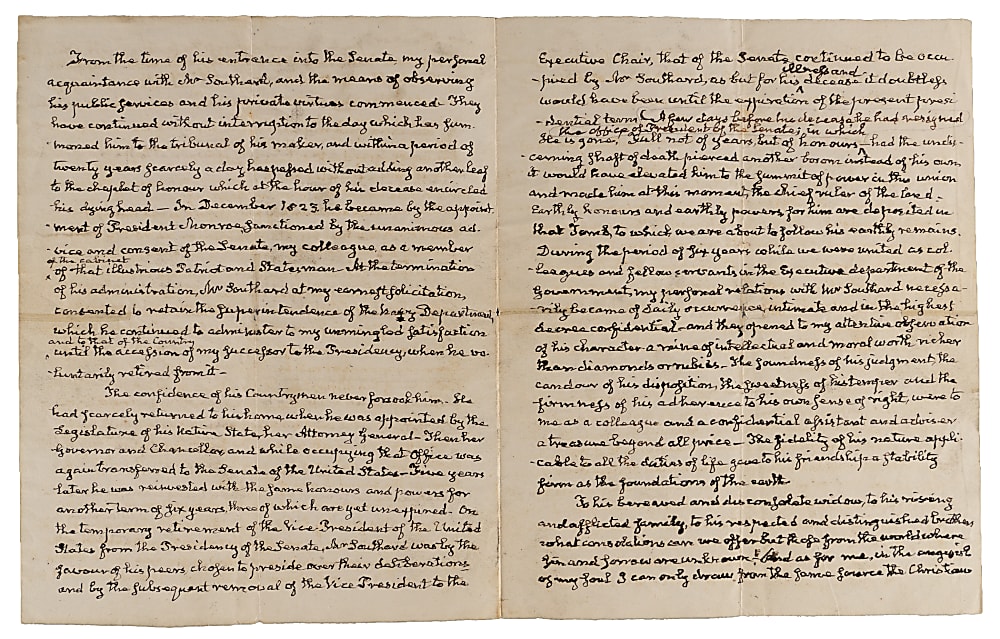 From the time of his entrance into the Senate, my personal
acquaintance with Mr Southard, and the means of observing
his public services and his private virtues commenced. They
have continued without interruption to the day which has sum-
moned him to the tribunal of his maker, and within a period of
twenty years scarcely a day has passed without adding another leaf
to the chaplet of honour which at the hour of his decease encircled
his dying head — In December 1823 he became by the appoint-
ment of President Monroe, sanctioned by the unanimous ad-
-vice and consent of the Senate, my colleague as a member
of the cabinet
of that illustrious Patriot and Statesman — At the termination
of his administration, Mr Southard at my earnest solicitation,
consented to retain the superintendence of the Navy Department,
which he continued to administer to my unmingled satisfaction
and to that of the Country
until the accession of my successor to the Presidency, when he vo-
-luntarily retired from it —
The confidence of his Countrymen never forsook him. He
had scarcely returned to his home, when he was appointed by the
Legislature of his Native State, her Attorney General — Then her
Governor and Chancellor, and while occupying that Office was
again transferred to the Senate of the United States — Five years
later he was reinvested with the same honours and powers for
another term of six years, three of which are yet unexpired. On
the temporary retirement of the Vice-President of the United
States from the Presidency of the Senate, Mr Southard was by the
favour of his peers chosen to preside over their deliberations
and by the subsequent removal of the Vice President to the
Executive Chair, that of the Senate continued to be occu-
illness and
-pied by Mr Southard, as but for his decease it doubtless
would have been until the expiration of the present presi-
-dential term. A few days before his decease, he had resigned
the office of President of the Senate; in which
He is gone, Full not of years, but of honours — had the undis-
-cerning shaft of death pierced another bosom instead of his own,
it would have elevated him to the summit of power in this union
and made him at this moment, the chief ruler of the land.
Earthly honours and earthly powers for him are deposited in
that Tomb, to which we are about to follow his earthly remains.
During the period of six years while we were united as col-
-leagues and fellow servants in the Executive department of the
Government, my personal relations with Mr Southard necessa-
-rily became of daily occurrence, intimate and in the highest
degree confidential — and they opened to my attentive observation
of his character a mine of intellectual and moral worth richer
than diamonds or rubies — The soundness of his judgment, the
candour of his disposition, the sweetness of his temper and the
firmness of his adherence to his own sense of right, were to
me as a colleague and a confidential assistant and adviser
a treasure beyond all price — The fidelity of his nature appli-
-cable to all the duties of life gave to his friendship a stability
firm as the foundations of the earth
To his bereaved and disconsolate widow, to his
and afflicted family, to his respected and distinguished brethren
what consolations can we offer but those from the world where
sin and sorrow are unknown? And as for me, in the anguish
of my soul I can only draw from the same source the Christian